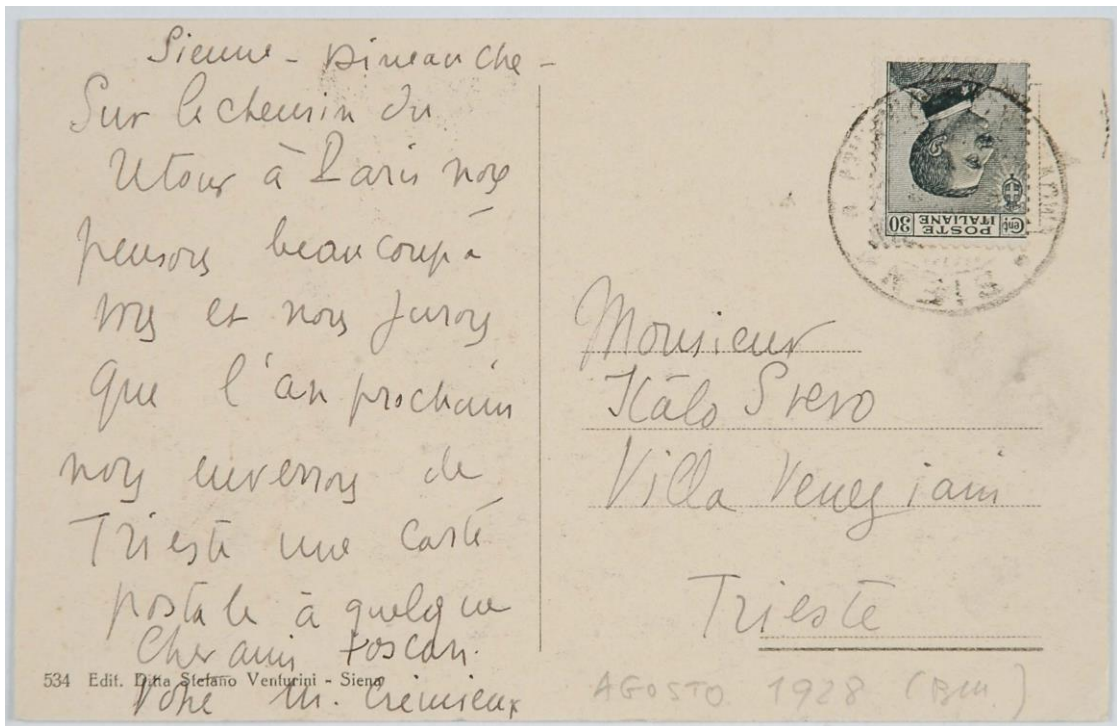 Sienne - Dimanche -
Sur le chemin du
retour à Paris nous
pensons beaucoup à
vous et nous jurons
que l'an prochain
nous enverrons de
Trieste une carte
postale à quelque
cher ami toscan.
Votre M. Crémieux
534 Edit. Ditta Stefano Venturini - Siena
Cent 30
POSTE
ITALIANE
SIENA
Monsieur
Italo Svevo
Villa Veneziani
Trieste
AGOSTO 1928 (BM)